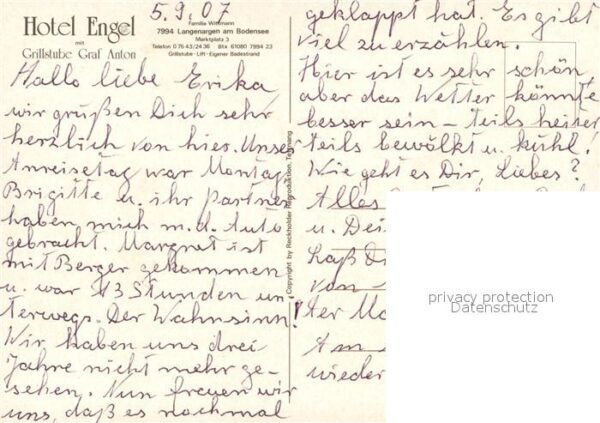 Hotel Engel
mit
Grillstube Graf Anton
5.9.07
Familie Wittmann
7994 Langenargen am Bodensee
Marktplatz 3
Telefon 0 75 43/24 36 Btx 61080 7994 23
Grillstube · Lift · Eigener Badestrand
Hallo liebe Erika,
wir grüßen Dich sehr
herzlich von hier. Unser
Anreisetag war Montag
Brigitte u. ihr Partner
haben mich m. d. Auto
gebracht. Margret ist
mit Berger gekommen
u. war 13 Stunden un
terwegs. Der Wahnsinn!
Wir haben uns drei
Jahre nicht mehr ge-
sehen. Nun freuen wir
uns, daß es nochmal
Copyright by Reckholder Reproduction,
geklappt hat. Es gibt
viel zu erzählen.
Hier ist es sehr schön,
aber das Wetter könnte
besser sein – teils heiter
teils bewölkt u. kühl!
Wie geht es Dir, Liebes?
Alles
u. Dei
Laß D
von
ter Ma
Am
wieder
privacy protection
Datenschutz